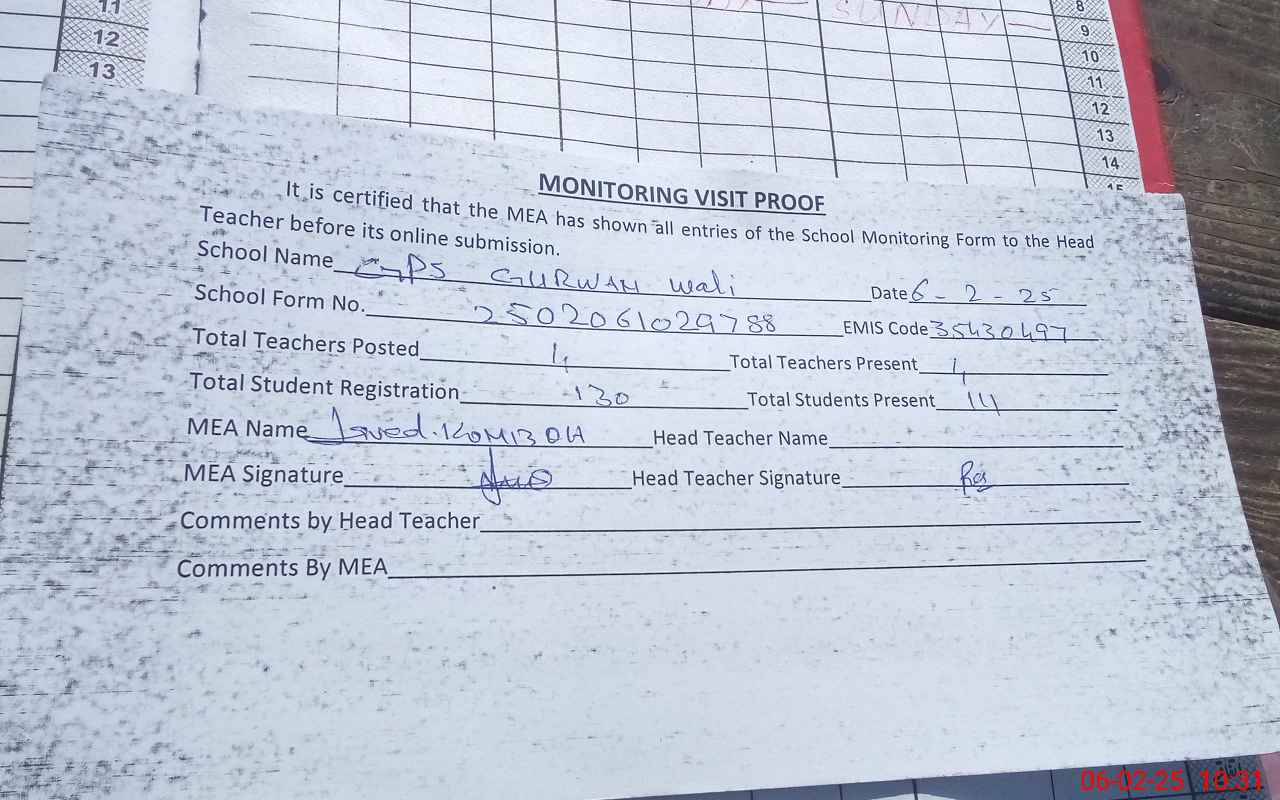 11
12
13
SUNDAY
8
9
10
11
12
13
14
15
MONITORING VISIT PROOF
It is certified that the MEA has shown all entries of the School Monitoring Form to the Head
Teacher before its online submission.
School Name GPS GURWAH Wali Date 6-2-25
School Form No. 2502061029788 EMIS Code 35430497
Total Teachers Posted 4 Total Teachers Present 4
Total Student Registration 130 Total Students Present 114
MEA Name Head Teacher Name
MEA Signature Head Teacher Signature
Comments by Head Teacher
Comments By MEA
06-02-25 10:31